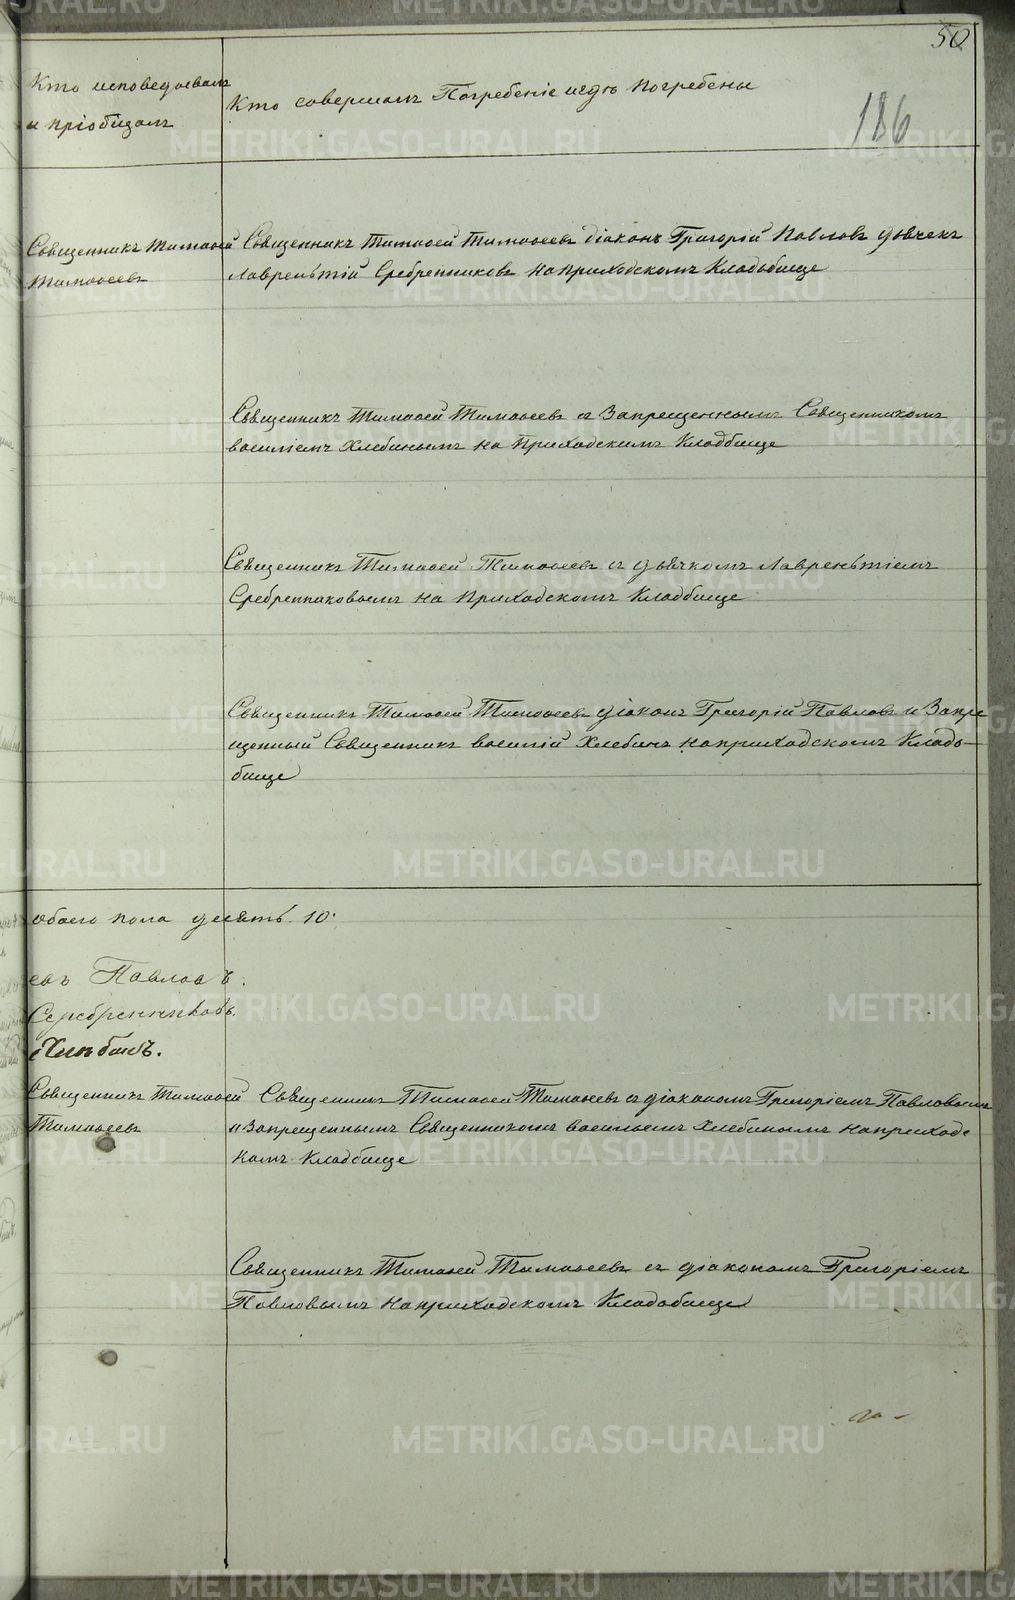 50
186
Кто исповедовалъ
и пріобщалъ
Кто совершалъ Погребеніе и гдѣ Погребены
Священникъ Тимоѳей
Тимоѳеевъ
Священникъ Тимоѳей Тимоѳеевъ діаконъ Григорій Павловъ дьячекъ
Лаврентій Сребренниковъ на приходскомъ Кладьбище
Священникъ Тимоѳей Тимоѳеевъ съ Запрещеннымъ Священникомъ
василіемъ Хлебинымъ на Приходскимъ Кладбище
Священникъ Тимоѳей Тимоѳеевъ съ дьячкомъ Лавреньтіемъ
Сребренниковымъ на Приходскомъ Кладбище
Священникъ Тимоѳей Тимоѳеевъ діаконъ Григорій Павловъ и Запре
щенный Священникъ василій Хлебинъ на приходскомъ Кладь-
бище
обоего пола десять 10.
евъ Павловъ.
Серебренниковъ.
Хлѣбинъ.
Священникъ Тимоѳей
Тимоѳеевъ
Священникъ Тимоѳей Тимоѳеевъ съ діакономъ Григоріемъ Павловымъ
и Запрещеннымъ Священникомъ васильемъ Хлебинымъ на приходс
комъ Кладбище
Священникъ Тимоѳей Тимоѳеевъ съ діакономъ Григоріемъ
Павловымъ на приходскомъ Кладьбище
METRIKI.GASO-URAL.RU